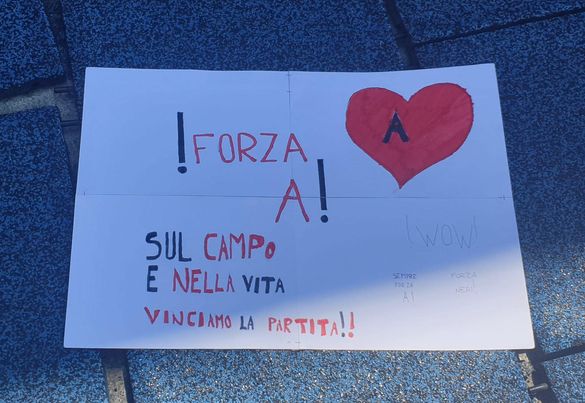 !FORZA
A!
A
SUL CAMPO
E NELLA VITA
VINCIAMO LA PARTITA!!
(WOW)
SEMPRE
FORZA
A!
FORZA
NERI!